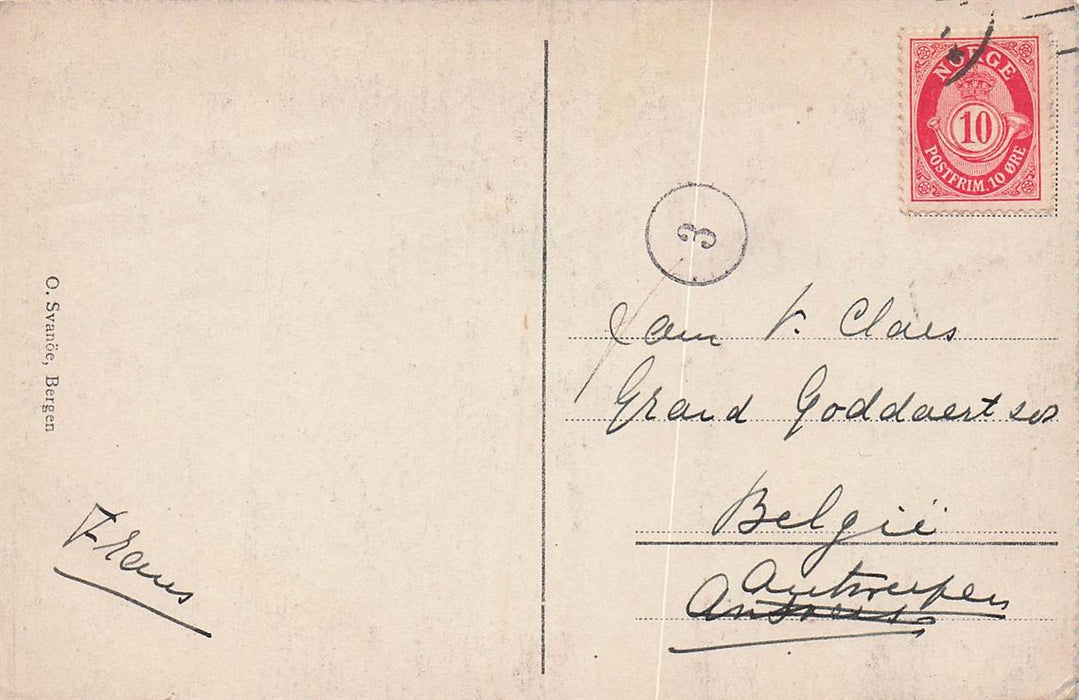 NORGE
10
POSTFRIM. 10 ØRE
3
Fam V. Claes
Grand Goddaert
België
Antwerpen
O. Svanöe, Bergen
Frans